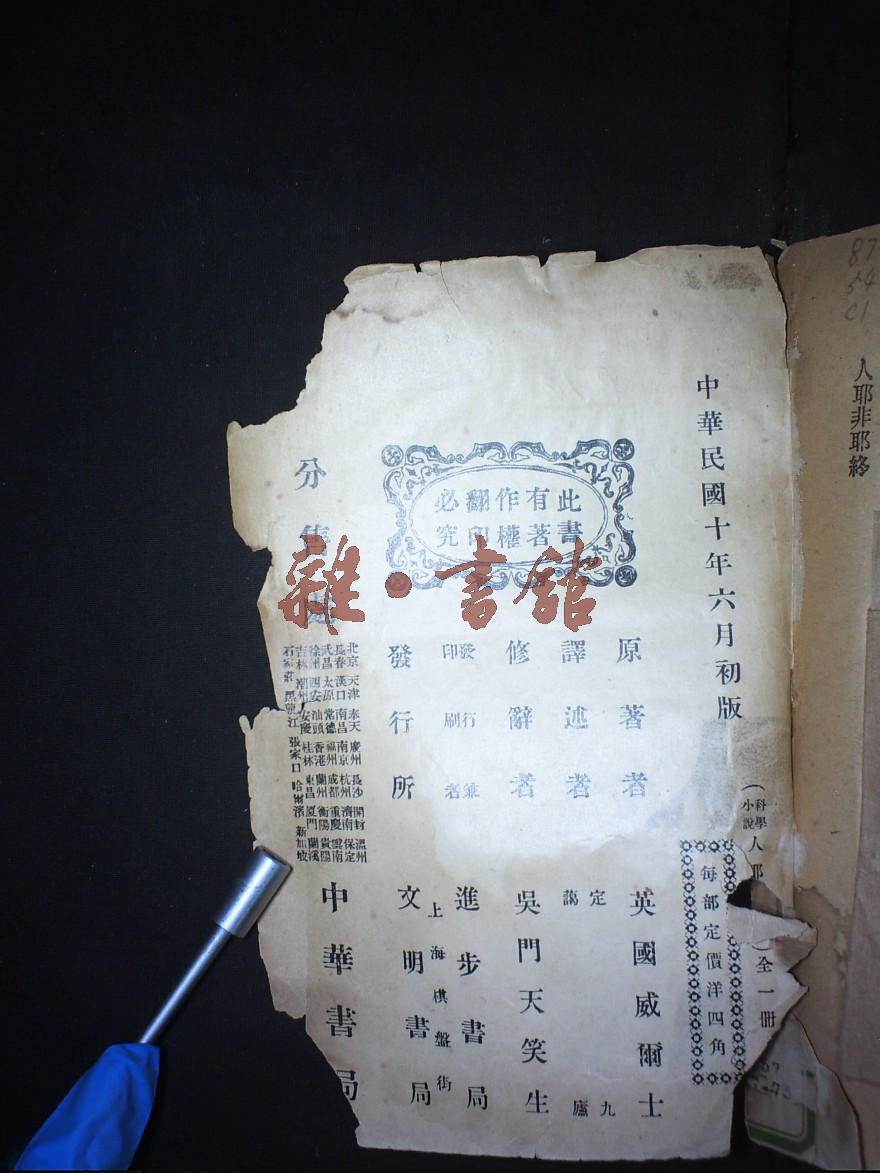 87
54
C1
人耶非耶終
中華民國十年六月初版
(科學小說)人耶
)全一冊
每部定價洋四角
此書有著作權翻印必究
原著者 英國威爾士
譯述者 定九 藹廬
修辭者 吳門天笑生
發行兼印刷者 進步書局
上海棋盤街
發行所 文明書局
分售處 中華書局
北京 天津 奉天 廣州 長沙 開封 溫州
長春 漢口 南昌 南京 杭州 濟南 保定
武昌 太原 常德 福州 成都 重慶 雲南
徐州 西安 汕頭 香港 蘭州 衡陽 貴陽
吉林 潮州 安慶 桂林 東昌 厦門 蘭溪
石家莊 黑龍江 張家口 哈爾濱 新加坡
雜·書館